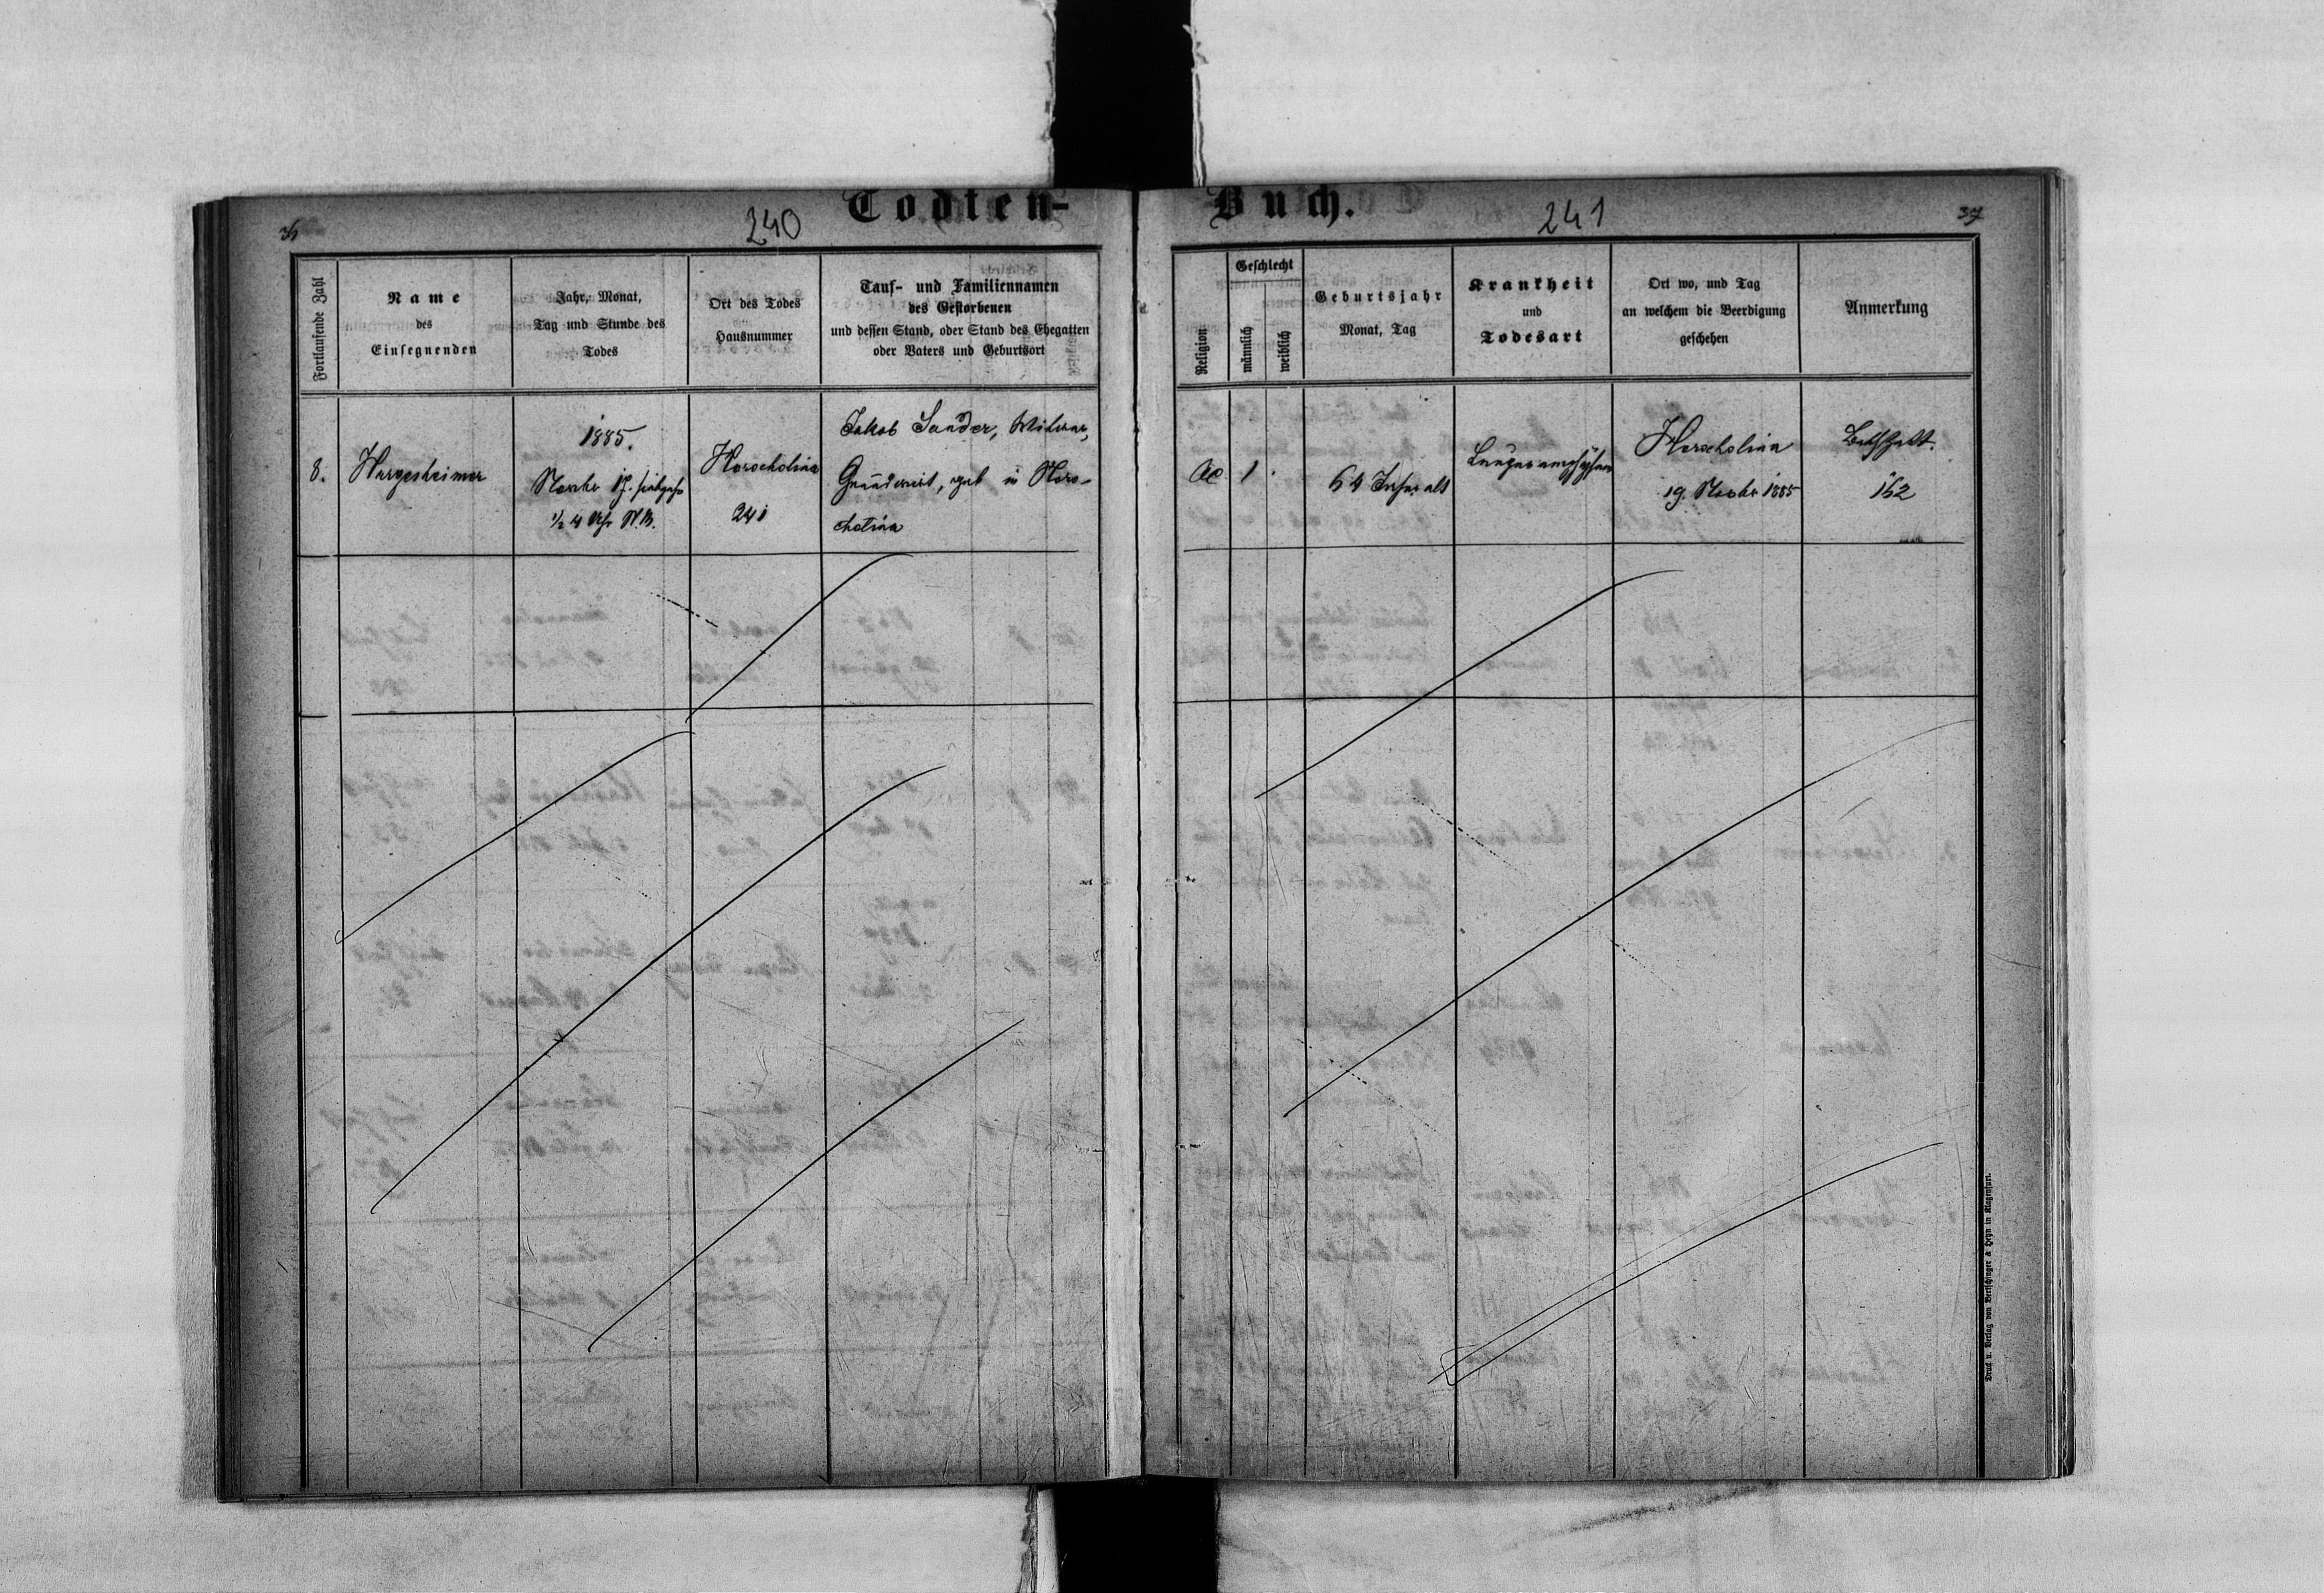 Todten-
Buch.
240
241
37
Fortlaufende Zahl
Name
des
Einsegnenden
Jahr, Monat,
Tag und Stunde des
Todes
Ort des Todes
Hausnummer
Tauf- und Familiennamen
des Gestorbenen
und dessen Stand, oder Stand des Ehegatten
oder Vaters und Geburtsort
Religion
Geschlecht
männlich
weiblich
Geburtsjahr
Monat, Tag
Krankheit
und
Todesart
Ort wo, und Tag
an welchem die Beerdigung
geschehen
Anmerkung
8.
Hargesheimer
1885.
Novbr 17.
1/2 4 Uhr N.M.
Horocholina
241
Jakob Sander, Witwer,
Grundwirt, geb in Horo-
cholina
AC
1
64 Jahre alt
Horocholina
19. Novbr 1885
162
Druck u. Verlag von Bertschinger & Heyn in Klagenfurt.